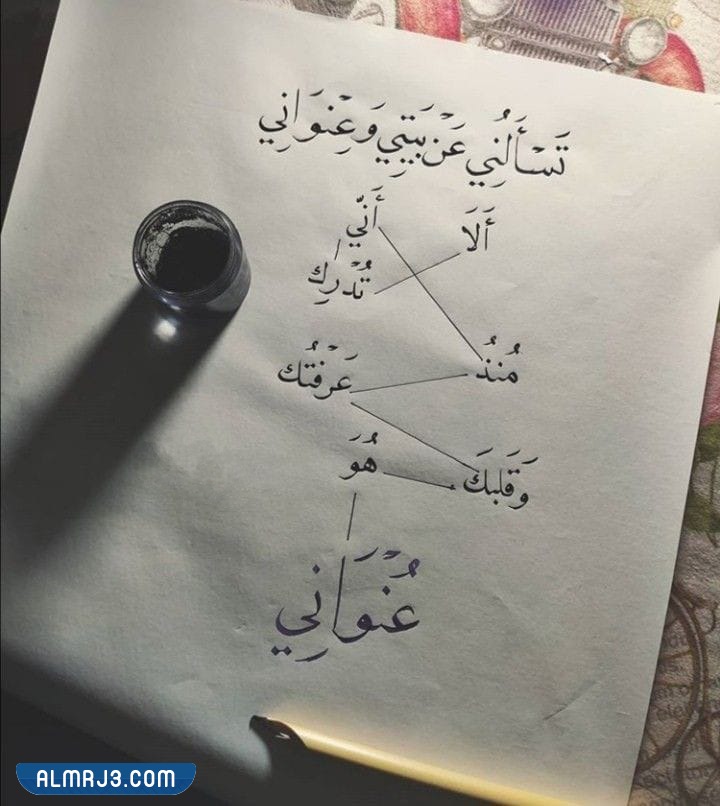 تَسْأَلُنِي عَنْ بَيْتِي وَعِنْوَانِي
أَلَا
أَنّي
تُدْرِك
مُنذُ
عَرَفْتُك
وَقَلبكَ
هُوَ
عُنْوَانِي
ALMRJ3.COM